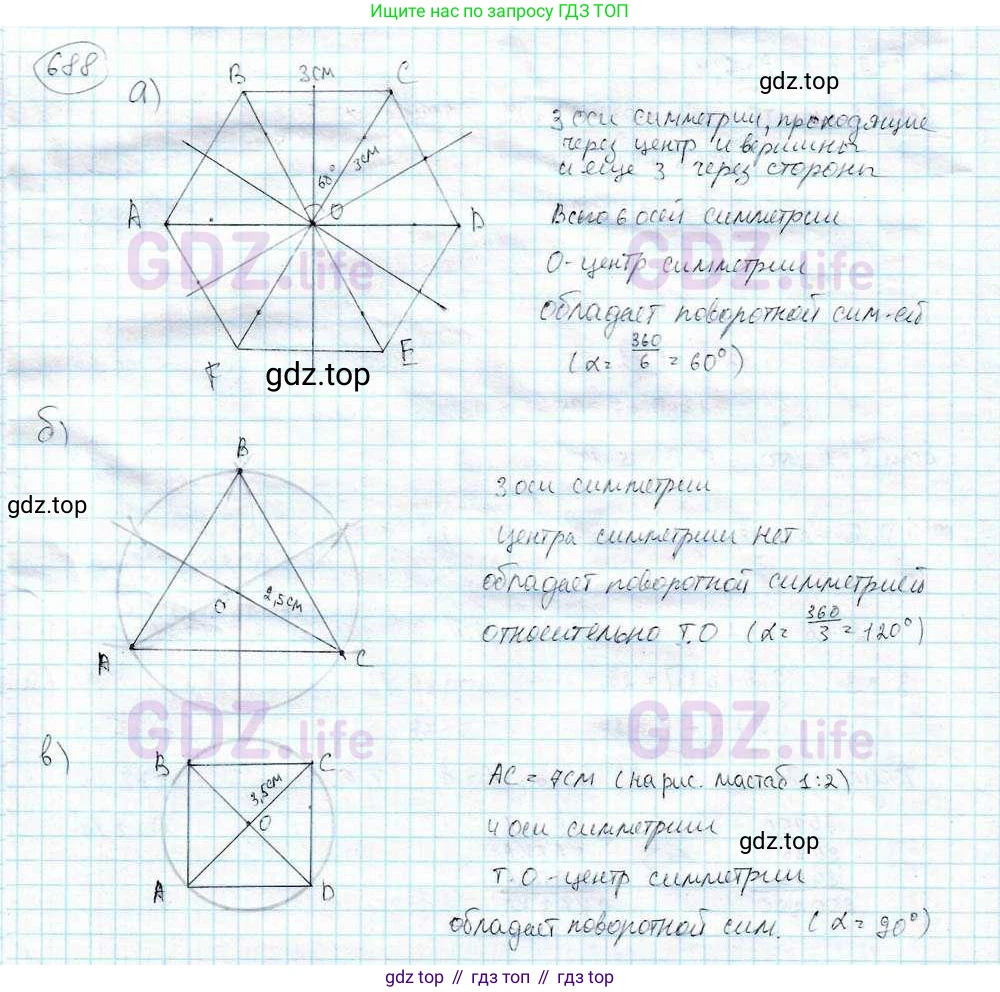 Ищите нас по запросу ГДЗ ТОП
688
а)
B 3см C
gdz.top
3 оси симметрии, проходящие
через центр и вершины
и еще 3 через стороны
60° 3см
A O D
Всего 6 осей симметрии
GDZ.life GDZ.life
O - центр симметрии
обладает поворотной сим-ей
(α = 360/6 = 60°)
F E
gdz.top
б)
B
gdz.top
3 оси симметрии
Центра симметрии нет
обладает поворотной симметрией
O 2,5см
относительно т.O (α = 360/3 = 120°)
A C
GDZ.life GDZ.life
в)
B C
3,5см
AC = 7см (на рис. мастаб 1:2)
O
4 оси симметрии
gdz.top
A D
т.O - центр симметрии
обладает поворотной сим. (α = 90°)
gdz top // гдз топ // gdz.top